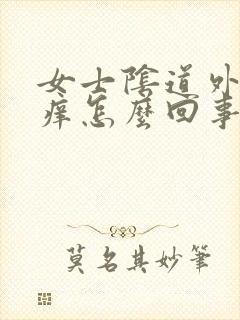 女士陰道外
痒怎麼回事
莫名其妙筆